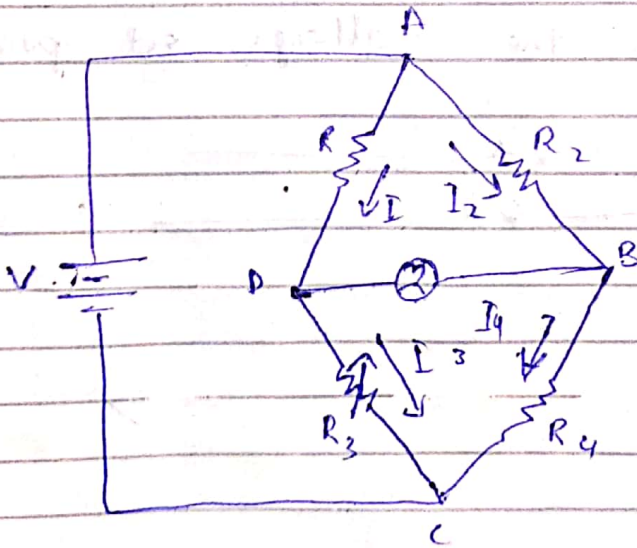 A
R
R2
I
I2
V
D
B
I4
I3
R3
R4
C